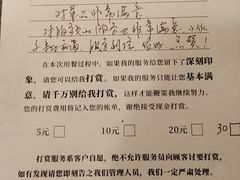 对菜品非常满意
在本次用餐过程中,如果我的服务给您留下了深刻印
象,请您可以给我打赏。如果我的服务只让您基本满
意,请千万别给我打赏,这样才能鞭策我继续努力。
您的打赏费用将记入您的账单,谢绝接受现金打赏。
5元 10元 20元 30
打赏服务系客户自愿,绝不允许服务员向顾客讨要打赏,
如有发现请您即刻告之我们管理人员,我们一定严肃处理。